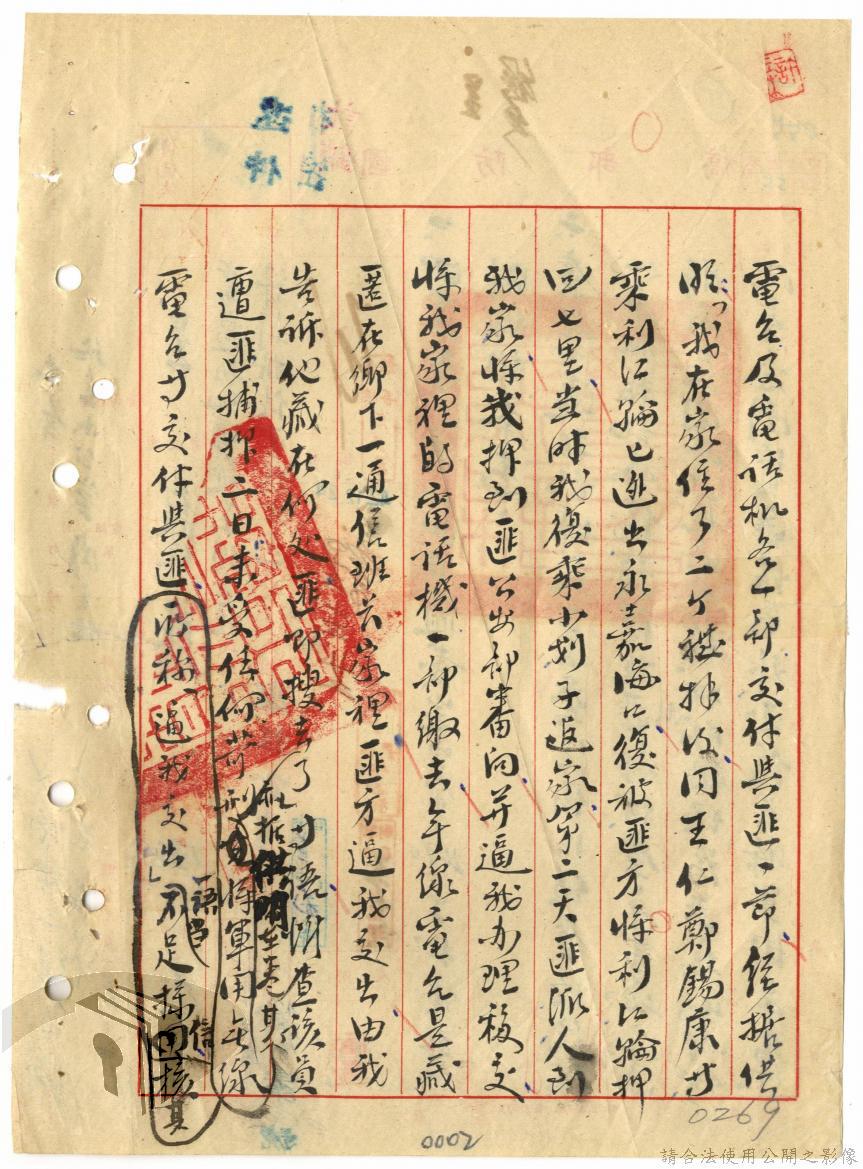 電台及電話机各一部交付與匪一節經據供
明「我在家住了二个礼拜後同王仁鄭錫康等
乘利江輪已逃出永嘉海口復被匪方將利江輪押
回七里当時我復乘小划子返家第二天匪派人到
我家將我押到匪公安部審问并逼我办理移交
將我家裡的電話機一部繳去無線電台是藏
匿在鄉下一通信班长家裡匪方逼我交出由我
告訴他藏在何处匪即搜去了」等語渊查該員
遭匪捕押二日未受任何苛刑將軍用無線
既据供明在卷其
電台等交付與匪所称「逼我交出」一語自不足採信核其
0269
0002
請合法使用公開之影像